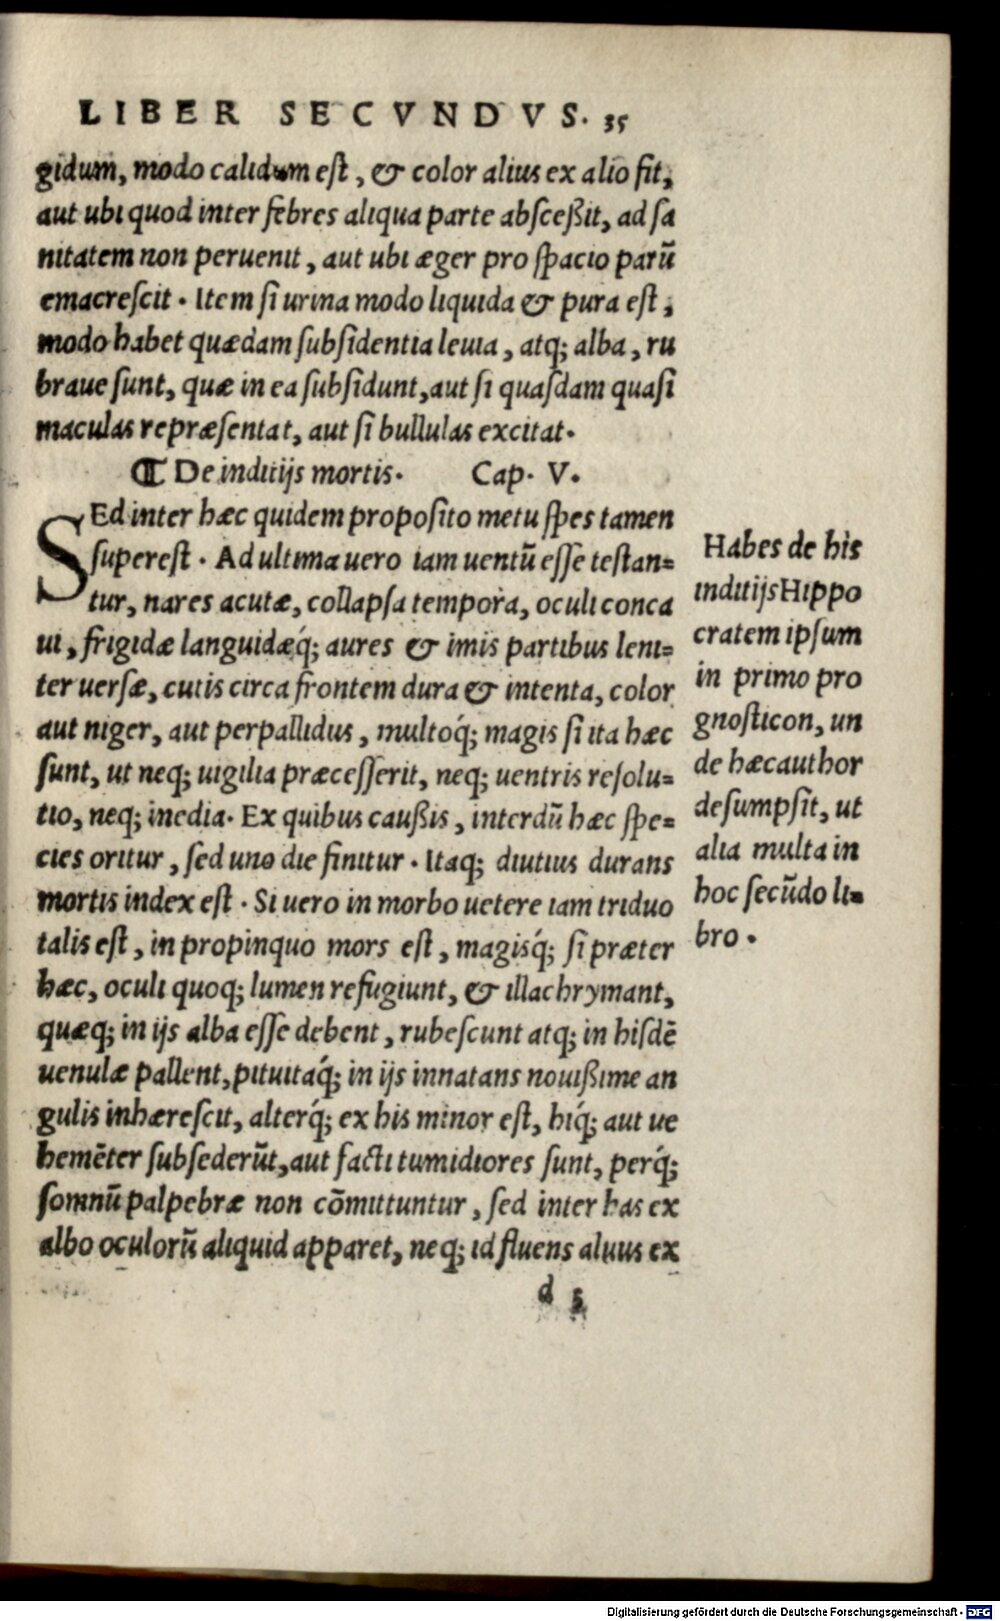 LIBER SECVNDVS. 35
gidum, modo calidum est, & color alius ex alio fit,
aut ubi quod inter febres aliqua parte abſceßit, ad ſa
nitatem non peruenit, aut ubi æger pro ſpacio parũ
emacreſcit. Item ſi urina modo liquida & pura eſt,
modo habet quædam ſubſidentia leuia, atq; alba, ru
braue ſunt, quæ in ea ſubſidunt, aut ſi quaſdam quaſi
maculas repræſentat, aut ſi bullulas excitat.
¶ De inditijs mortis. Cap. V.
SEd inter hæc quidem propoſito metu ſpes tamen
ſupereſt. Ad ultima uero iam uentũ eſſe teſtan=
tur, nares acutæ, collapſa tempora, oculi conca
ui, frigidæ languidæq́; aures & imis partibus leni=
ter uerſæ, cutis circa frontem dura & intenta, color
aut niger, aut perpallidus, multoq́; magis ſi ita hæc
ſunt, ut neq; uigilia præceſſerit, neq; uentris reſolu=
tio, neq; inedia. Ex quibus caußis, interdũ hæc ſpe=
cies oritur, ſed uno die finitur. Itaq; diutius durans
mortis index eſt. Si uero in morbo uetere iam triduo
talis eſt, in propinquo mors eſt, magisq́; ſi præter
hæc, oculi quoq; lumen refugiunt, & illachrymant,
quæq; in ijs alba eſſe debent, rubeſcunt atq; in hiſdẽ
uenulæ pallent, pituitaq́; in ijs innatans nouißime an
gulis inhæreſcit, alterq́; ex his minor eſt, hiq́; aut ue
hemẽter ſubſederũt, aut facti tumidiores ſunt, perq́;
ſomnũ palpebræ non cõmittuntur, ſed inter has ex
albo oculorũ aliquid apparet, neq; id fluens aluus ex
d 5
Habes de his
inditijs Hippo
cratem ipſum
in primo pro
gnoſticon, un
de hæc author
deſumpſit, ut
alia multa in
hoc ſecũdo li=
bro.
Digitalisierung gefördert durch die Deutsche Forschungsgemeinschaft - DFG